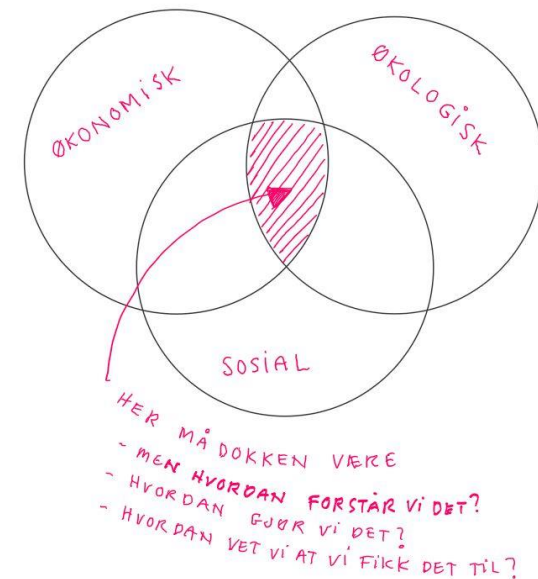 ØKONOMiSK
ØKOLOGiSK
SOSiAL
HER MÅ DOKKEN VÆRE
- MEN HVORDAN FORSTÅR Vi DET?
- HVORDAN GJØR Vi DET?
- HVORDAN VET Vi AT Vi FiKK DET TiL?